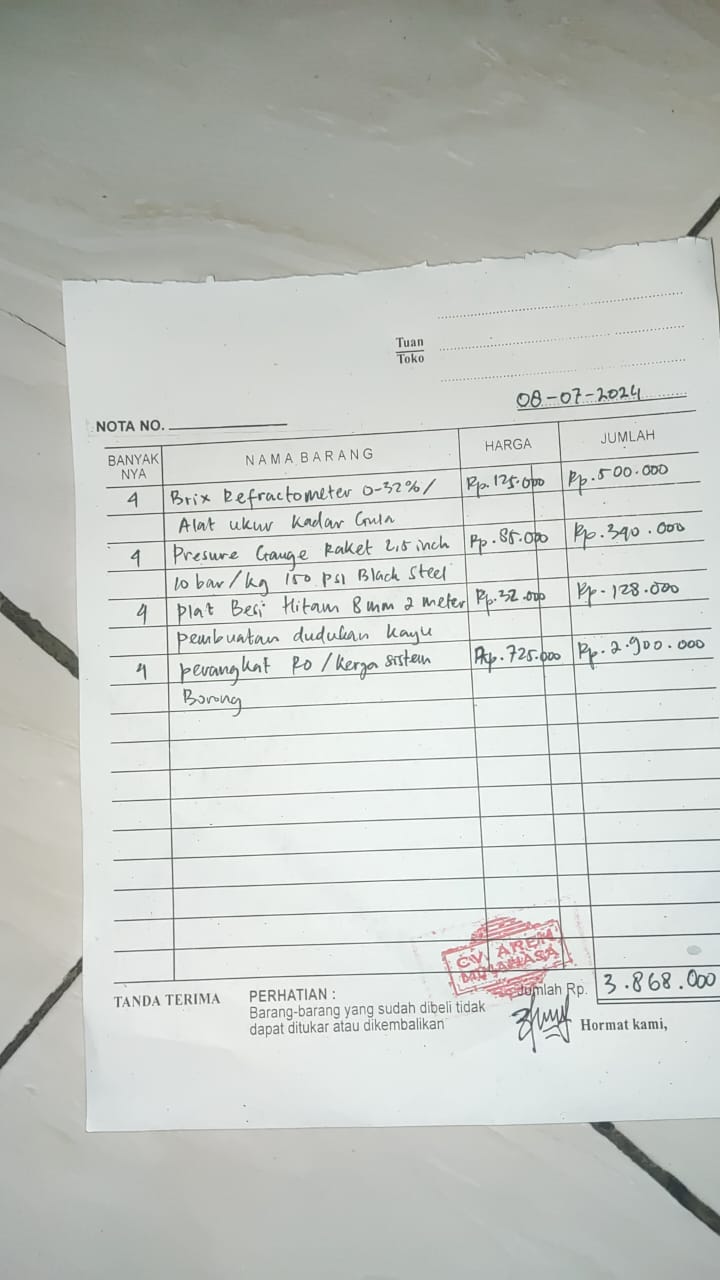 Tuan
Toko
08-07-2024
NOTA NO.
BANYAK NYA NAMA BARANG HARGA JUMLAH
4 Brix Refractometer 0-32%/ Rp. 125.000 Rp. 500.000
Alat ukur kadar Gula
4 Presure Gauge Raket 2,5 inch Rp. 85.000 Rp. 340.000
10 bar/kg 150 psi Black Steel
4 plat Besi Hitam 8 mm 2 meter Rp. 32.000 Rp. 128.000
pembuatan dudukan kayu
4 perangkat RO / kerja sistem Rp. 725.000 Rp. 2.900.000
Borong
CV. AREN
MINAHASA
Jumlah Rp. 3.868.000
TANDA TERIMA
PERHATIAN :
Barang-barang yang sudah dibeli tidak
dapat ditukar atau dikembalikan
Hormat kami,